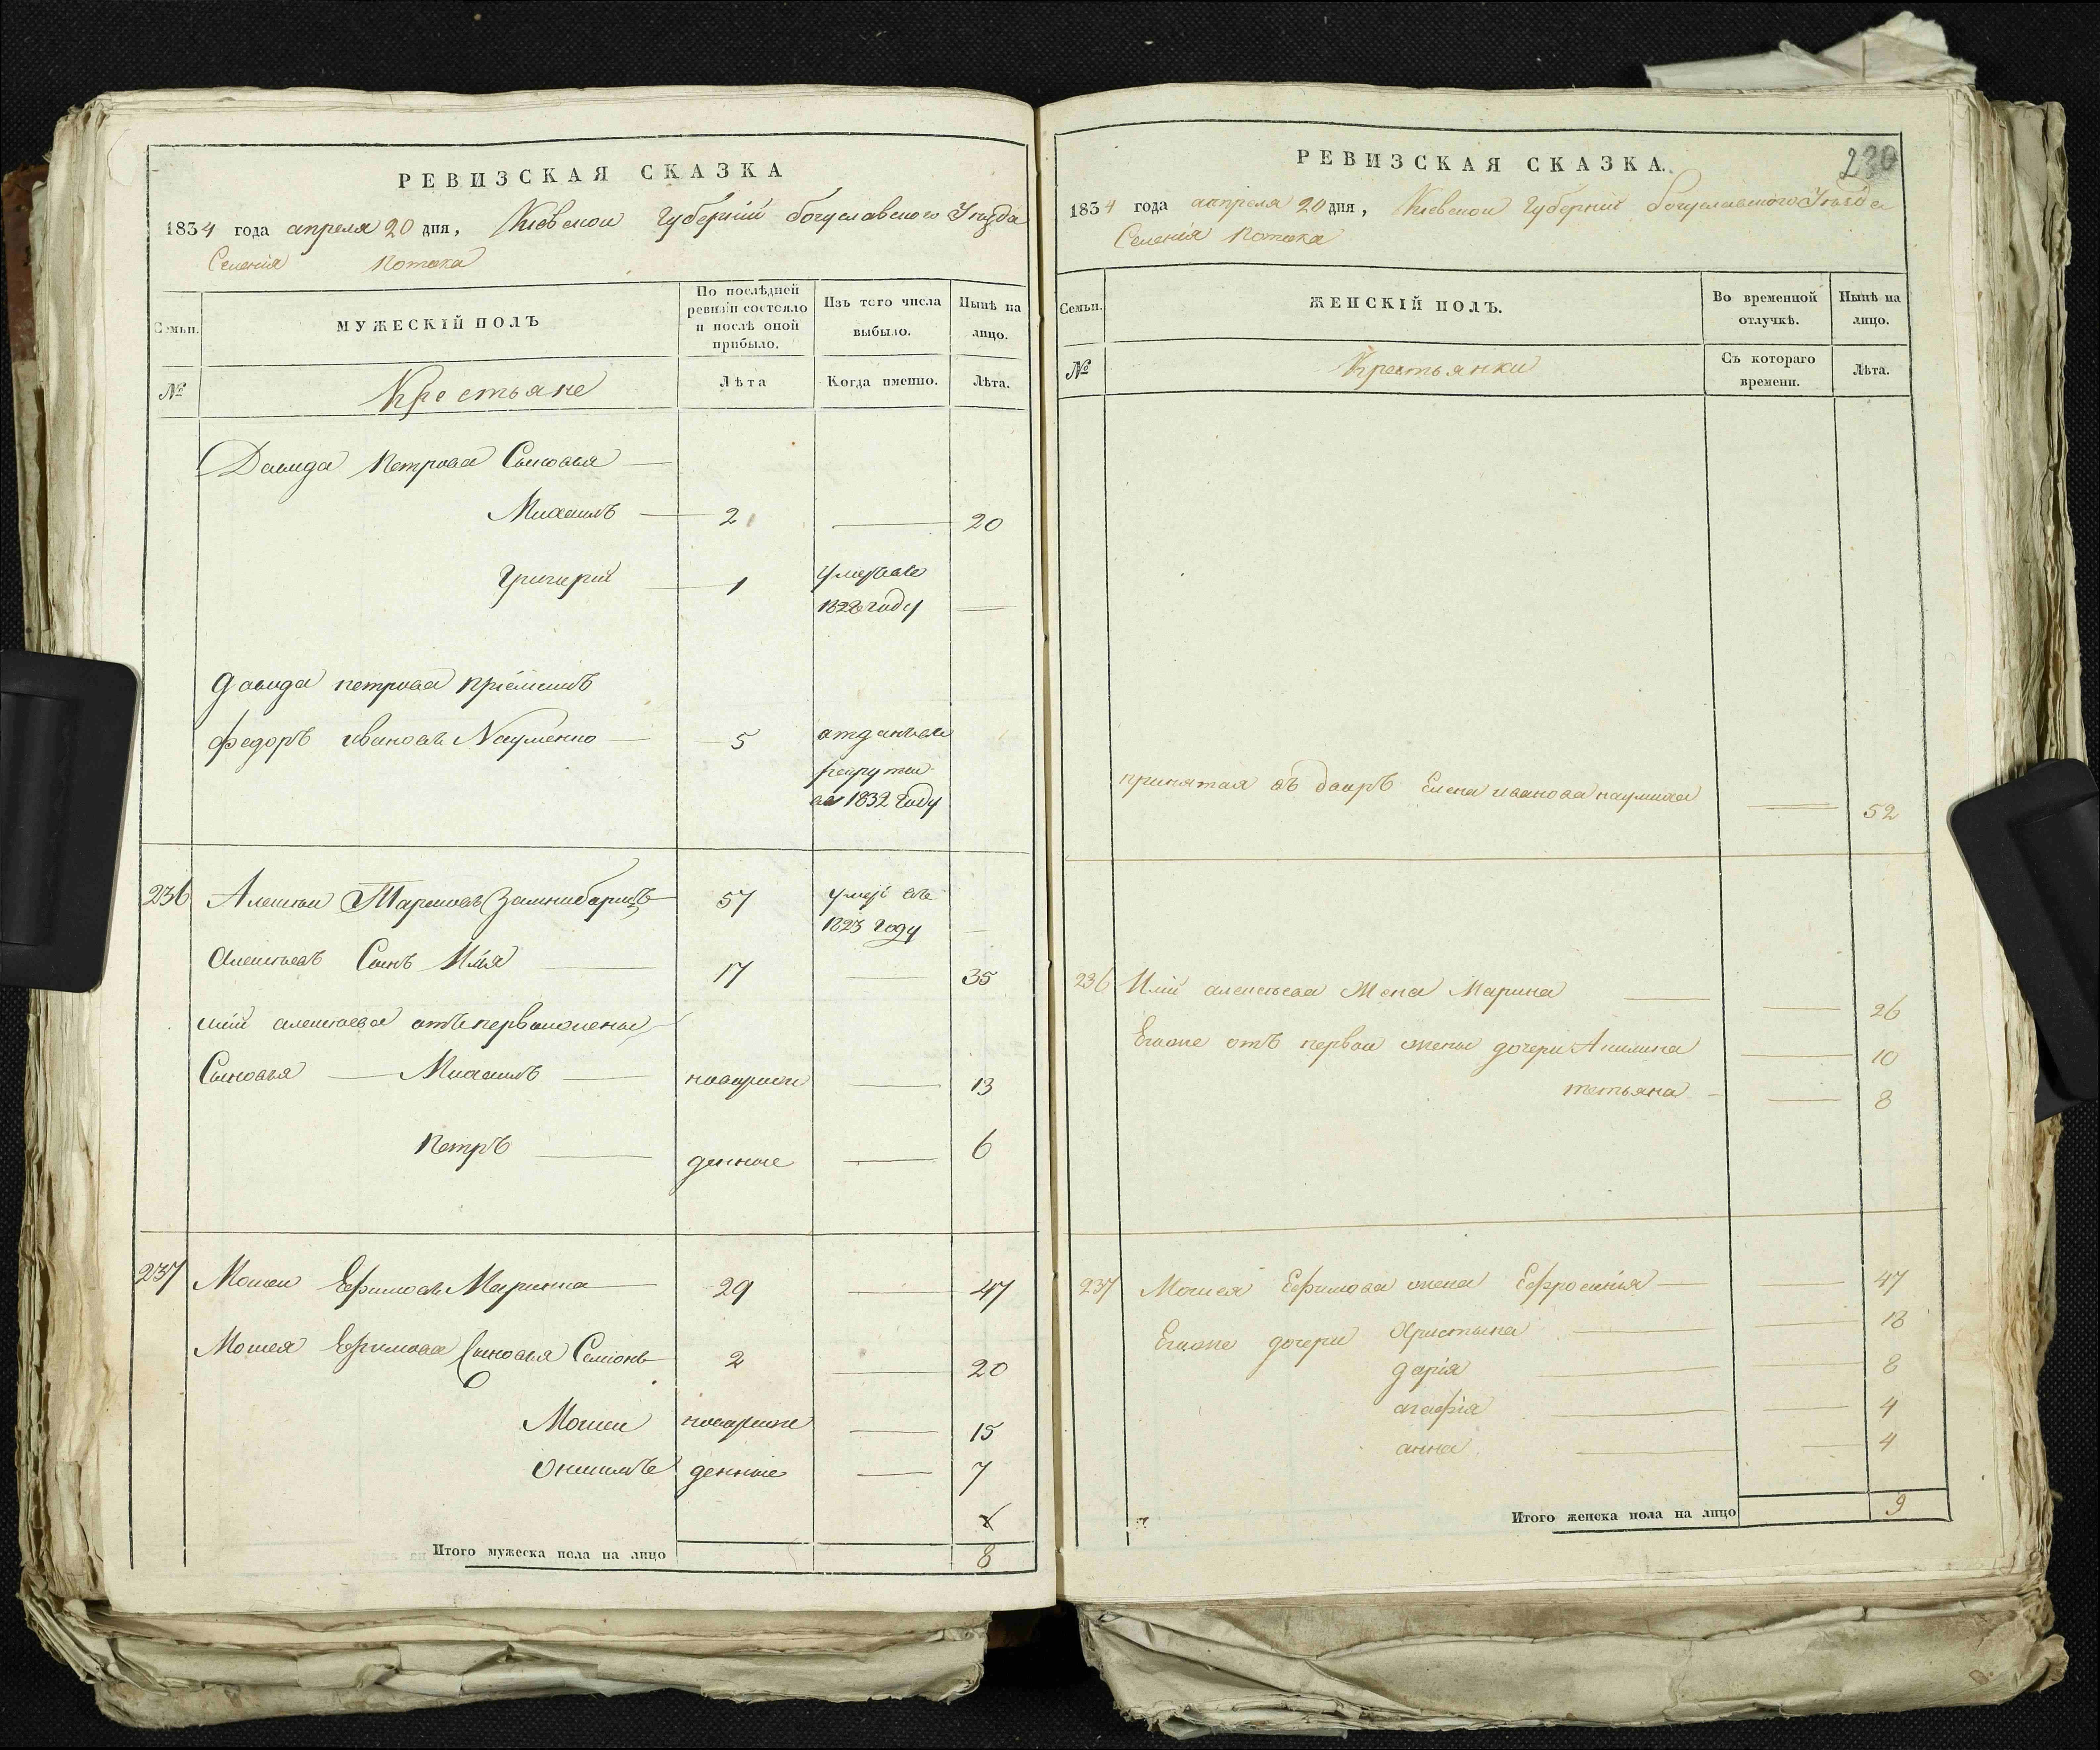 РЕВИЗСКАЯ СКАЗКА
1834 года апреля 20 дня, Кіевской Губерніи богуславского Уезда
Селенія Потока
Семьи.
МУЖЕСКІЙ ПОЛЪ
По послѣдней ревизіи состояло и послѣ оной прибыло.
Изъ того числа выбыло.
Нынѣ на лицо.
№
Крестьяне
Лѣта
Когда именно.
Лѣта.
Давида Петрова Сыновья
Михаилъ 2 20
Григорій 1 умеръ ве
1828 году
давида петрова пріёмышъ
федоръ ивановъ Науменко 5 отданъ ве
рекруты
ве 1832 году
236 Алексей Тарасовъ 57 умер ве
1823 году
алексеевъ Сынъ Илья 17 35
иліи алексеева отъ первои жены
Сыновья Михаилъ новорож 13
Петръ денные 6
237 Мосеи Ефимовъ 29 47
Мосея Ефимова Сыновья Семіонъ 2 20
Мосеи новорож 15
Онисимъ денные 7
Итого мужеска пола на лицо 8
РЕВИЗСКАЯ СКАЗКА.
230
1834 года апреля 20 дня, Кіевской Губерніи богуславского Уезда
Селенія Потока
Семьи.
ЖЕНСКІЙ ПОЛЪ.
Во временной отлучкѣ.
Нынѣ на лицо.
№
Крестьянки
Съ котораго времени.
Лѣта.
принятая въ дворъ Елена иванова наумиха 52
236 Иліи алексеева Жена Марина 26
Егоже отъ первои жены дочери Акилина 10
тетьяна 8
237 Мосея Ефимова жена Ефросинія 47
Егоже дочери Христына 18
дарія 8
агафіа 4
анна 4
Итого женска пола на лицо 9